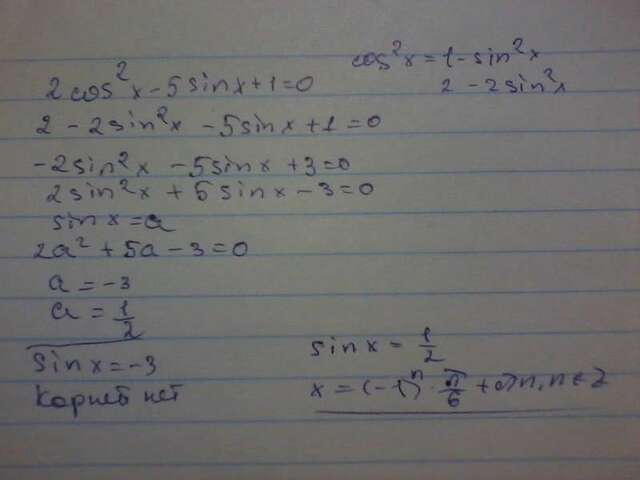 2cos²x - 5sinx + 1 = 0
cos²x = 1 - sin²x
2 - 2sin²x
2 - 2sin²x - 5sinx + 1 = 0
-2sin²x - 5sinx + 3 = 0
2sin²x + 5sinx - 3 = 0
sinx = a
2a² + 5a - 3 = 0
a = -3
a = 1/2
sinx = -3
Корней нет
sinx = 1/2
x = (-1)ⁿ · π/6 + πn, n ∈ Z